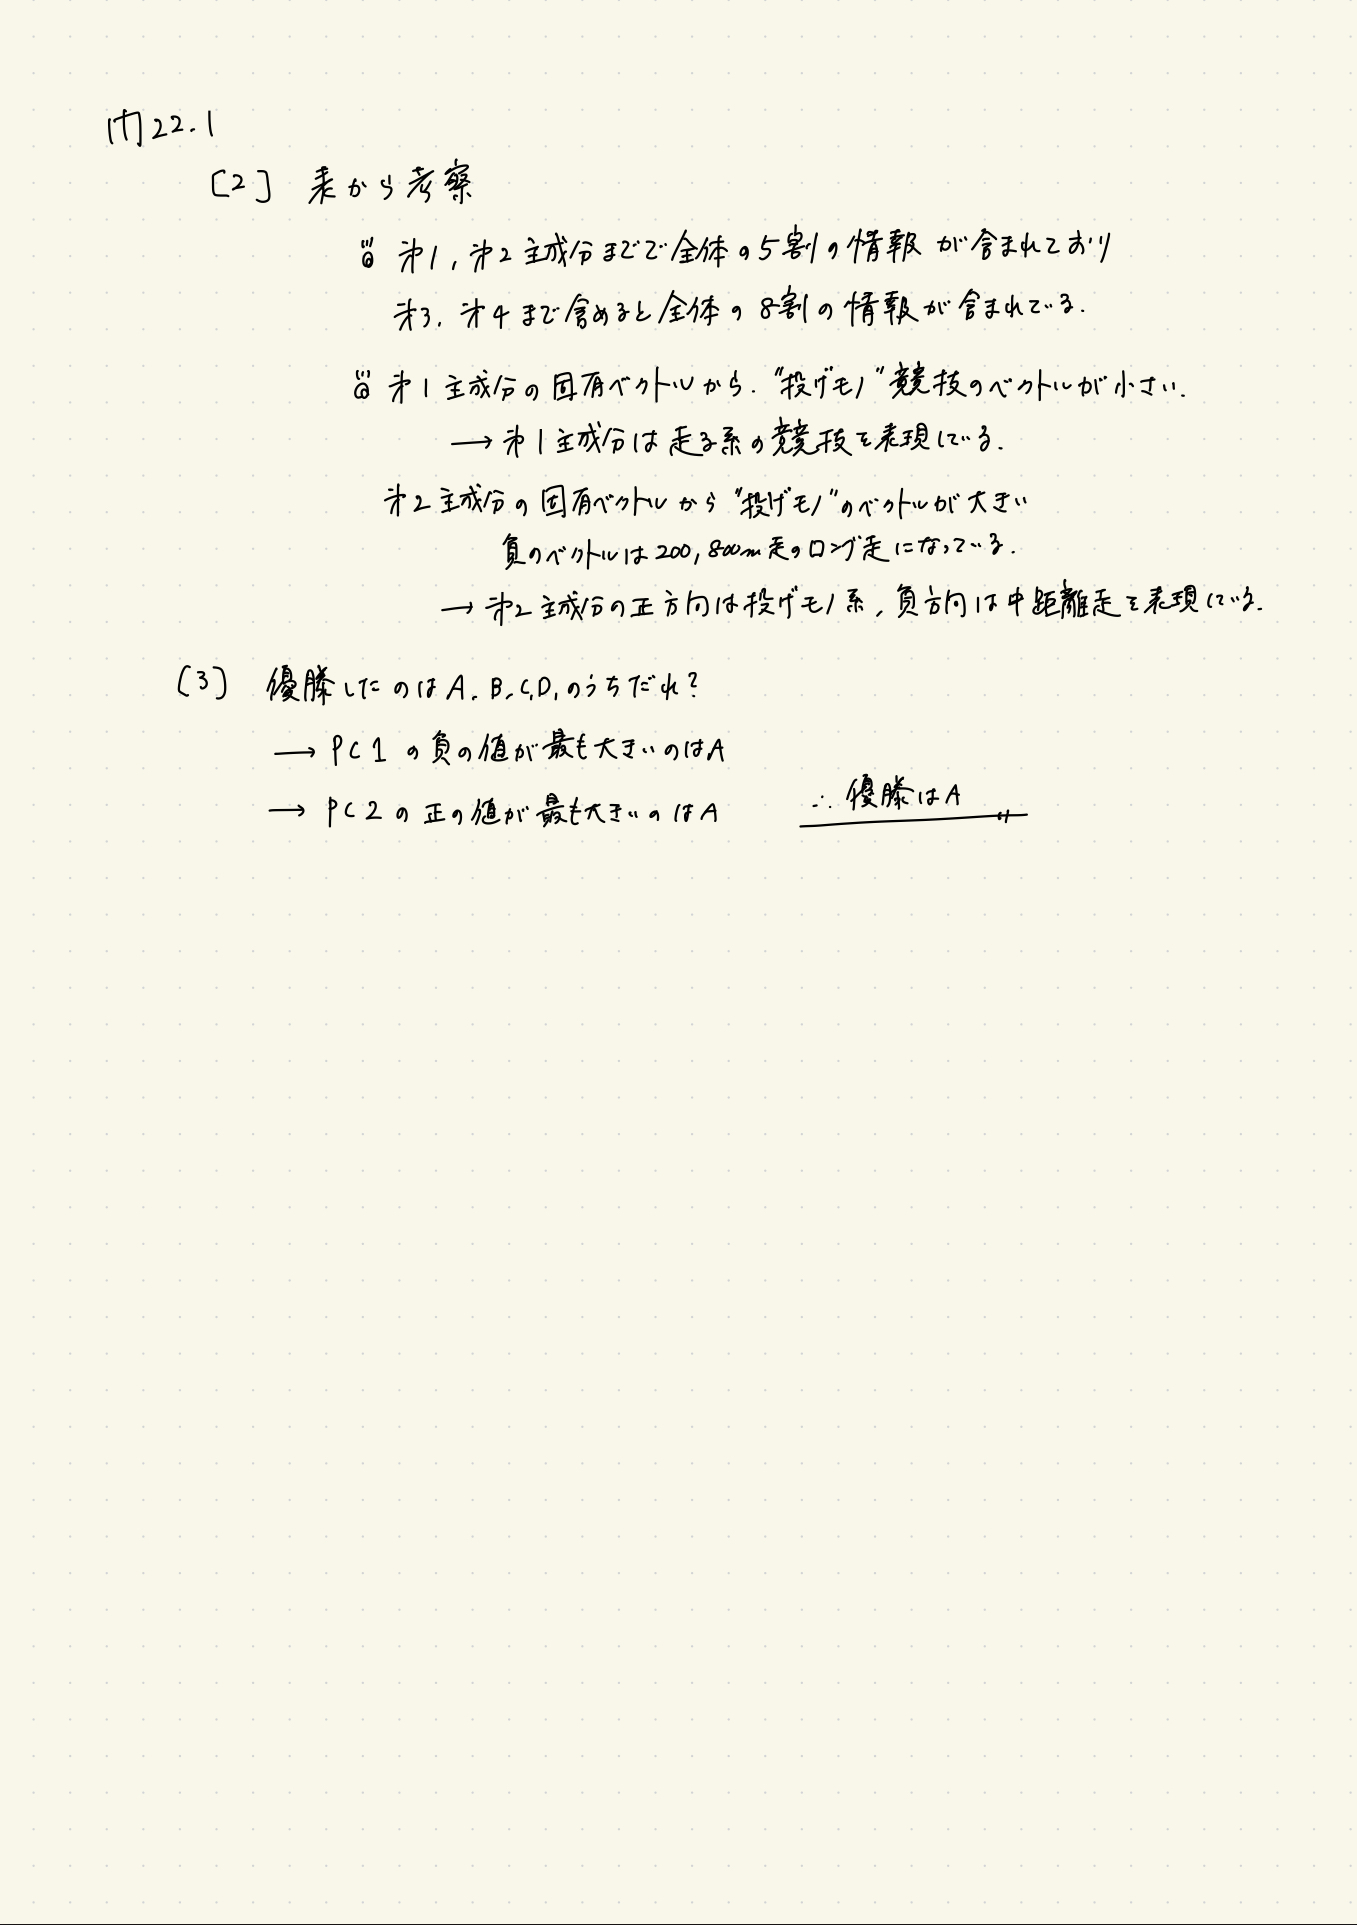 問22.1
[2] 表から考察
第1, 第2主成分までで全体の5割の情報が含まれており
第3, 第4まで含めると全体の8割の情報が含まれている.
第1主成分の固有ベクトルから. "投げモノ"競技のベクトルが小さい.
→ 第1主成分は走る系の競技を表現している.
第2主成分の固有ベクトルから"投げモノ"のベクトルが大きい
負のベクトルは200, 800m走のロング走になっている.
→ 第2主成分の正方向は投げモノ系, 負方向は中距離走を表現している.
[3] 優勝したのはA. B. C, D, のうちだれ?
→ PC1の負の値が最も大きいのはA
→ PC2の正の値が最も大きいのはA ∴ 優勝はA